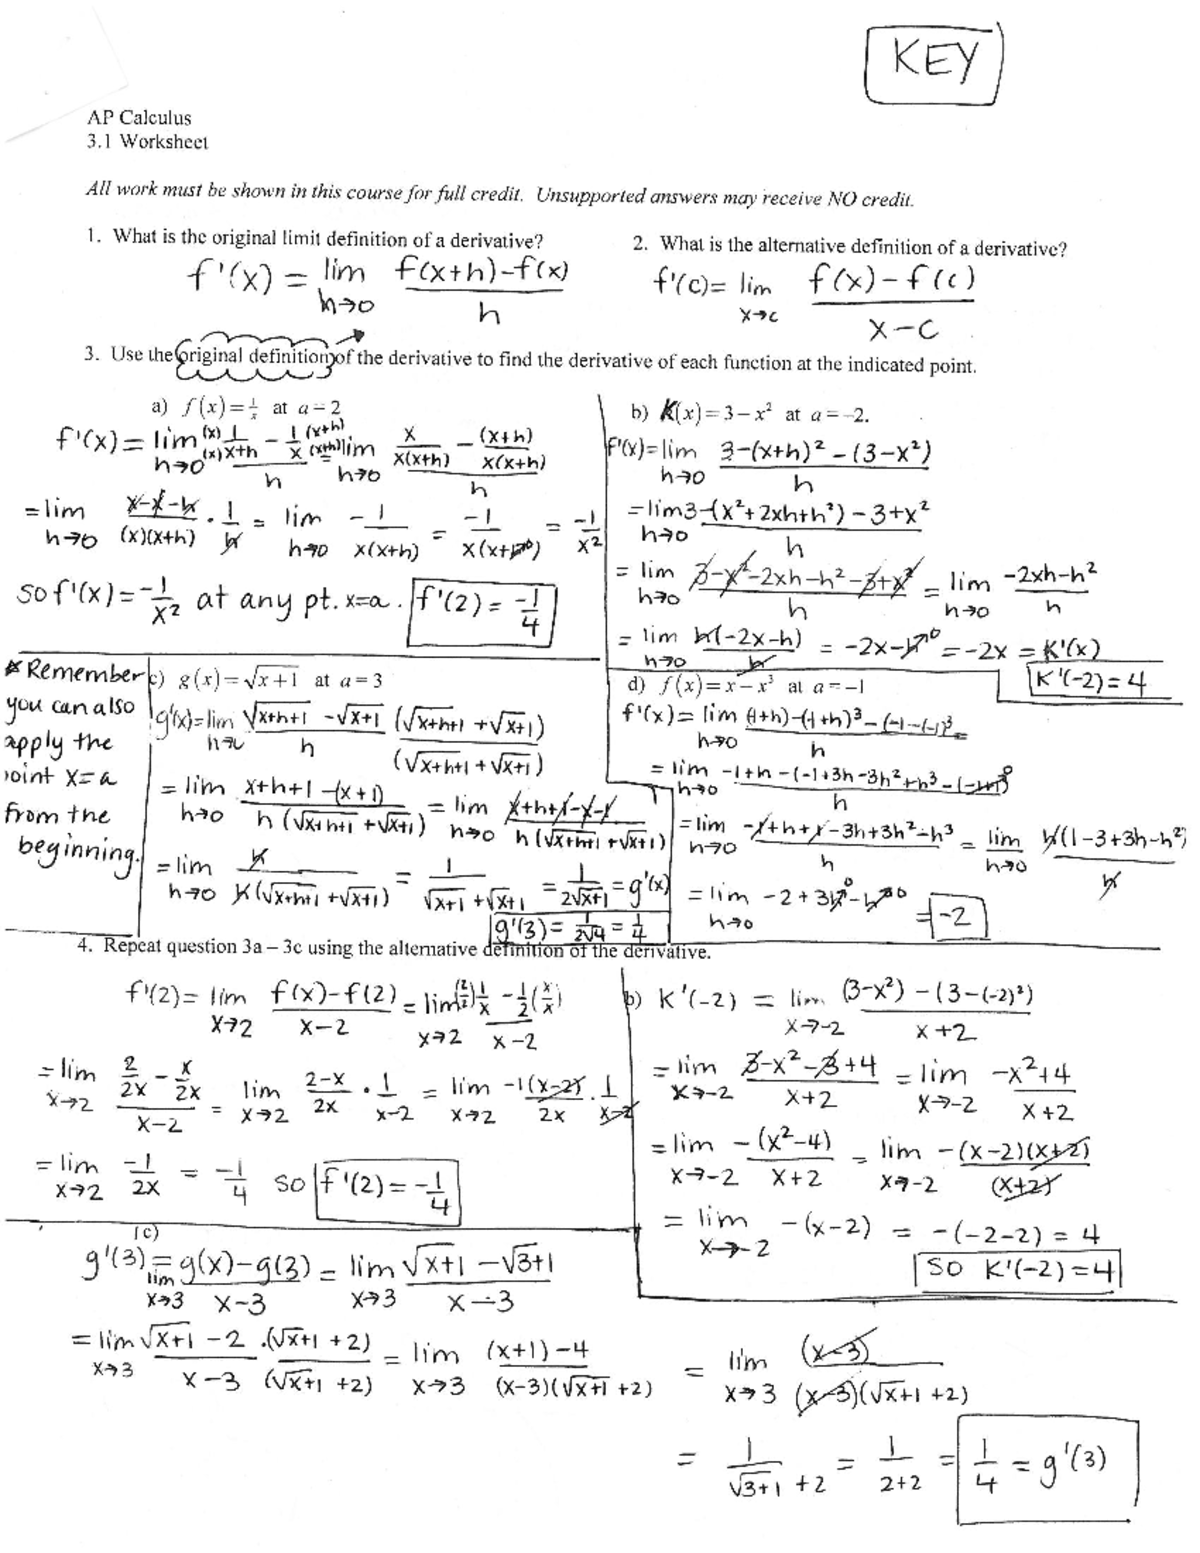 KEY
AP Calculus
3.1 Worksheet
All work must be shown in this course for full credit. Unsupported answers may receive NO credit.
1. What is the original limit definition of a derivative?
f'(x) = lim h→0 (f(x+h)-f(x))/h
2. What is the alternative definition of a derivative?
f'(c) = lim x→c (f(x)-f(c))/(x-c)
3. Use the original definition of the derivative to find the derivative of each function at the indicated point.
a) f(x) = 1/x at a = 2
f'(x) = lim h→0 ((x)/(x) 1/(x+h) - 1/x (x+h)/(x+h))/h = lim h→0 (x/(x(x+h)) - (x+h)/(x(x+h)))/h
= lim h→0 (x-x-h)/((x)(x+h)) · 1/h = lim h→0 -1/(x(x+h)) = -1/(x(x+0)) = -1/x²
so f'(x) = -1/x² at any pt. x=a. f'(2) = -1/4
b) K(x) = 3 - x² at a = -2.
f'(x) = lim h→0 (3-(x+h)² - (3-x²))/h
= lim h→0 (3-(x²+2xh+h²) - 3+x²)/h
= lim h→0 (3-x²-2xh-h²-3+x²)/h = lim h→0 (-2xh-h²)/h
= lim h→0 h(-2x-h)/h = -2x-h→0 = -2x = K'(x)
K'(-2) = 4
* Remember
you can also
apply the
point x=a
from the
beginning.
c) g(x) = √(x+1) at a = 3
g'(x) = lim h→0 (√(x+h+1) - √(x+1))/h (√(x+h+1) + √(x+1))/(√(x+h+1) + √(x+1))
= lim h→0 (x+h+1-(x+1))/(h(√(x+h+1) + √(x+1))) = lim h→0 (x+h+1-x-1)/(h(√(x+h+1) + √(x+1)))
= lim h→0 h/(h(√(x+h+1) + √(x+1))) = 1/(√(x+1) + √(x+1)) = 1/(2√(x+1)) = g'(x)
g'(3) = 1/(2√4) = 1/4
d) f(x) = x - x³ at a = -1
f'(x) = lim h→0 ((-1+h)-(-1+h)³-(-1-(-1)³))/h =
= lim h→0 (-1+h-(-1+3h-3h²+h³-(-1+1)→0)/h
= lim h→0 (-1+h+1-3h+3h²-h³)/h = lim h→0 h(1-3+3h-h²)/h
= lim h→0 -2+3h→0-h²→0 = -2
4. Repeat question 3a – 3c using the alternative definition of the derivative.
f'(2) = lim x→2 (f(x)-f(2))/(x-2) = lim x→2 ((2/2)1/x - 1/2(x/x))/(x-2)
= lim x→2 (2/2x - x/2x)/(x-2) = lim x→2 (2-x)/2x · 1/(x-2) = lim x→2 -1(x-2)/2x · 1/(x-2)
= lim x→2 -1/2x = -1/4 so f'(2) = -1/4
b) K'(-2) = lim x→-2 ((3-x²)-(3-(-2)²))/(x+2)
= lim x→-2 (3-x²-3+4)/(x+2) = lim x→-2 (-x²+4)/(x+2)
= lim x→-2 -(x²-4)/(x+2) = lim x→-2 -(x-2)(x+2)/(x+2)
= lim x→-2 -(x-2) = -(-2-2) = 4
so K'(-2) = 4
(c)
g'(3) = lim x→3 (g(x)-g(3))/(x-3) = lim x→3 (√(x+1) - √(3+1))/(x-3)
= lim x→3 (√(x+1) - 2)/(x-3) · (√(x+1) + 2)/(√(x+1) + 2) = lim x→3 ((x+1)-4)/((x-3)(√(x+1) + 2)) = lim x→3 (x-3)/((x-3)(√(x+1) + 2))
= 1/(√(3+1) + 2) = 1/(2+2) = 1/4 = g'(3)